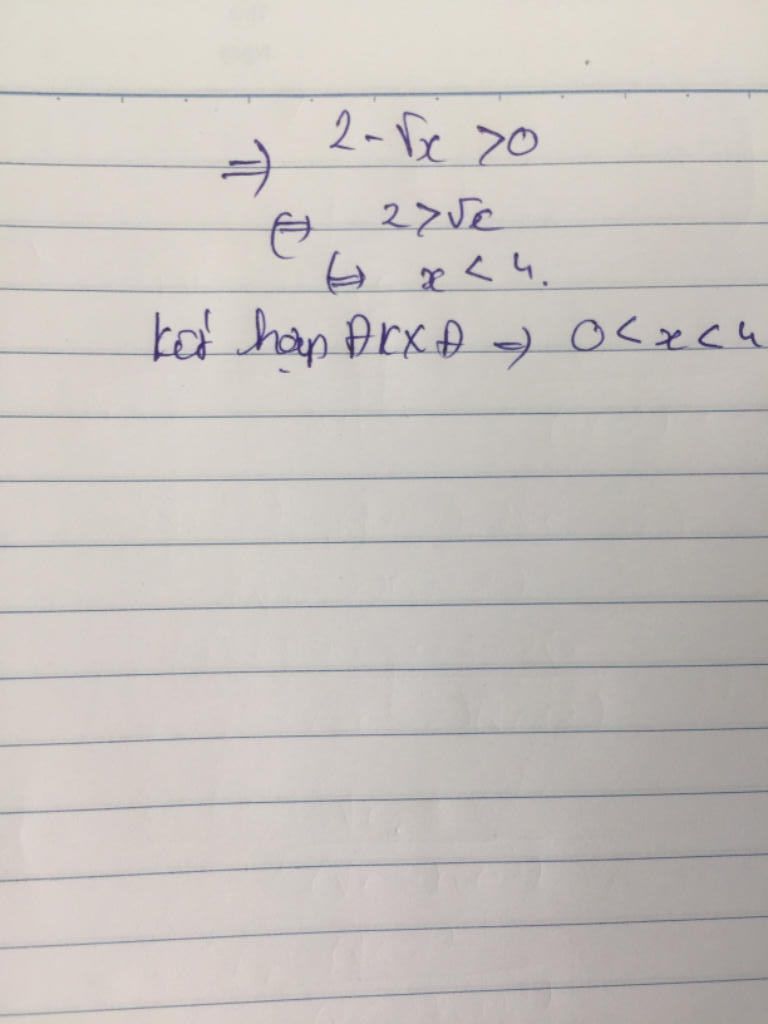 ⇒ 2 - √x > 0
⇔ 2 > √x
⇔ x < 4.
kết hợp ĐKXĐ ⇒ 0 < x < 4